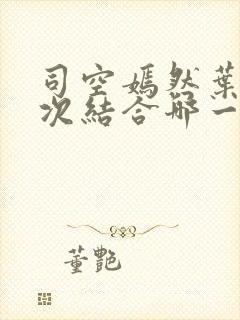 司空嫣然葉
次結合那一
董艷